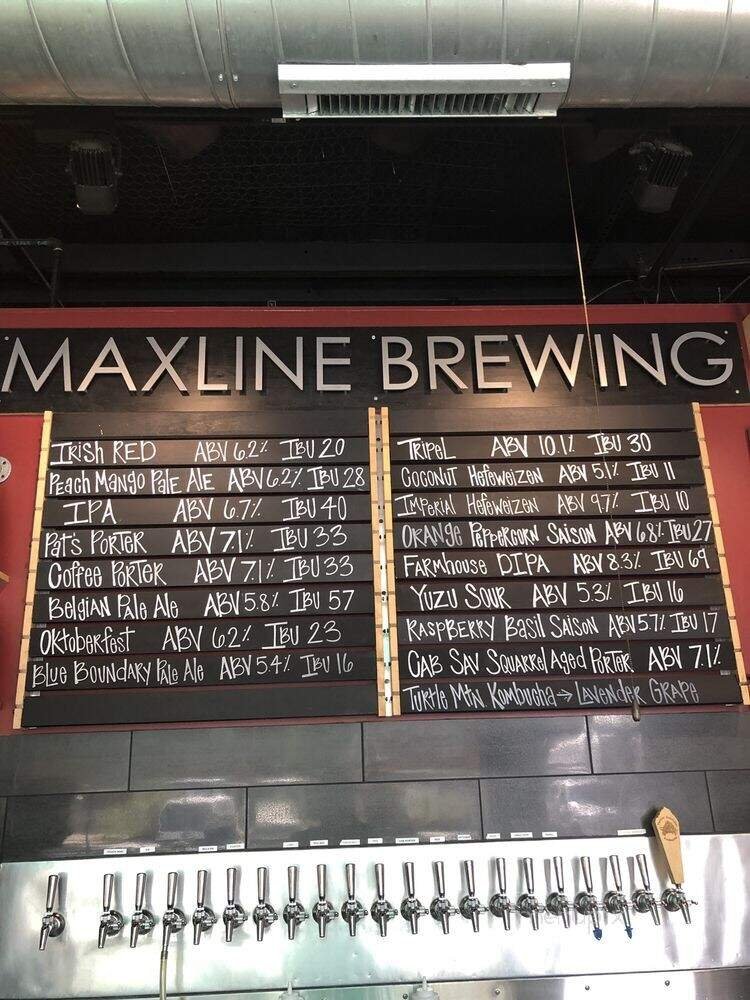 MAXLINE BREWING
IRISH RED ABV 6.2% IBU 20
PEACH MANGO PALE ALE ABV 6.2% IBU 28
IPA ABV 6.7% IBU 40
PAT'S PORTER ABV 7.1% IBU 33
COFFEE PORTER ABV 7.1% IBU 33
BELGIAN PALE ALE ABV 5.8% IBU 57
OKTOBERFEST ABV 6.2% IBU 23
BLUE BOUNDARY PALE ALE ABV 5.4% IBU 16
TRIPEL ABV 10.1% IBU 30
COCONUT HEFEWEIZEN ABV 5.1% IBU 11
IMPERIAL HEFEWEIZEN ABV 9.7% IBU 10
ORANGE PEPPERCORN SAISON ABV 6.8% IBU 27
FARMHOUSE DIPA ABV 8.3% IBU 69
YUZU SOUR ABV 5.3% IBU 16
RASPBERRY BASIL SAISON ABV 5.7% IBU 17
CAB SAV SQUARREL AGED PORTER ABV 7.1%
TURTLE MTN. KOMBUCHA → LAVENDER GRAPE